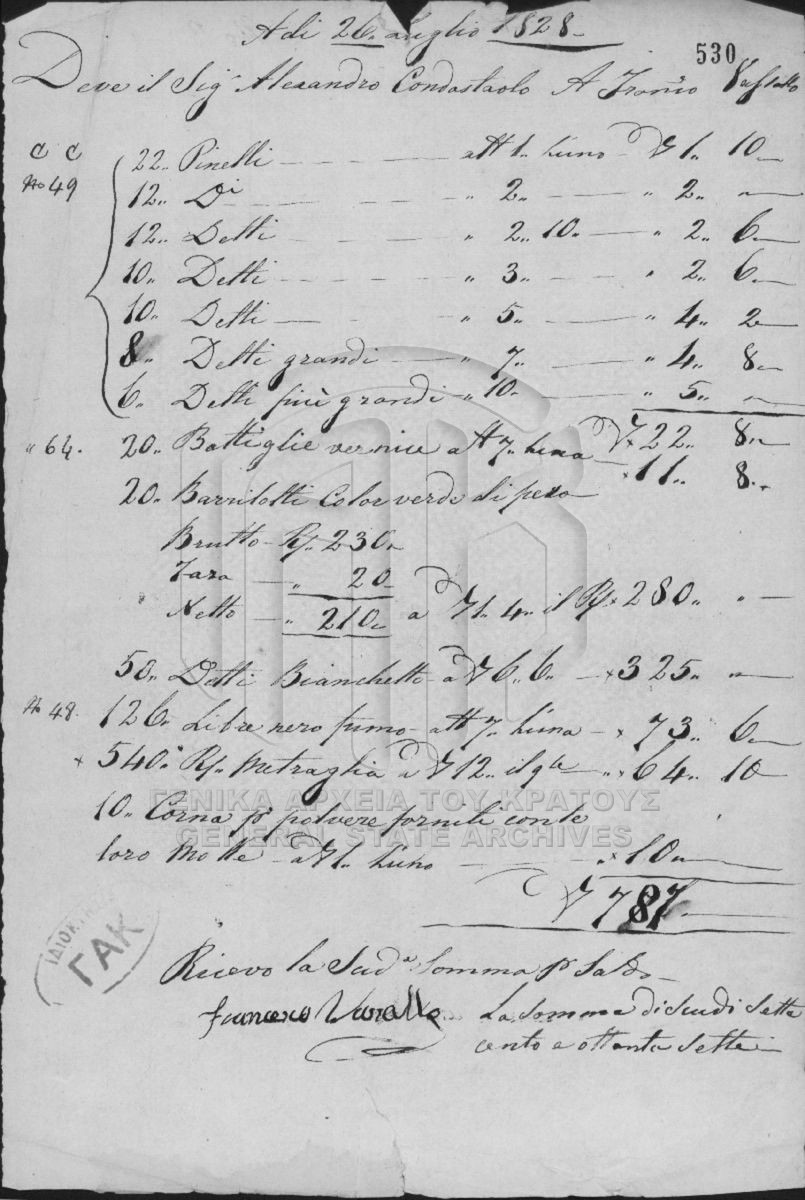 Adi 26. Luglio 1828.
530
Deve il Sigr. Alexandro Condostaolo A Franco Vassallo
C C 22.. Pinelli att 1.. Luno 1.. 10
No 49 12.. Di " 2.. " 2.. "
12.. Detti " 2.. 10.. " 2.. 6..
10.. Detti " 3.. " 2.. 6..
10.. Detti " 5.. " 4.. 2
8.. Detti grandi " 7.. " 4.. 8..
6.. Detti più grandi " 10.. " 5.. "
" 64. 20.. Bottiglie vernice att 7.. Luna 22.. 8..
20.. Barrilotti Color verde di peso × 11.. 8..
Brutto Rj. 230..
Tara " 20
Netto " 210.. a 1.. 4.. il Rj. × 280.. "
50.. Detti Bianchetto a 6.. 6.. × 325.. "
No 48. 126.. Libre nero fumo att 7.. Luna × 73.. 6..
× 540.. Rj. Mitraglia a 12.. il qle × 64.. 10
10.. Corna pr polvere forniti con le
loro Molle a 1.. Luno × 10..
787..
ΓΕΝΙΚΑ ΑΡΧΕΙΑ ΤΟΥ ΚΡΑΤΟΥΣ
GENERAL STATE ARCHIVES
ΓΑΚ
Ricevo la Suda Somma pr Saldo
Francesco La Somma di Scudi Sette
cento e ottanta Sette